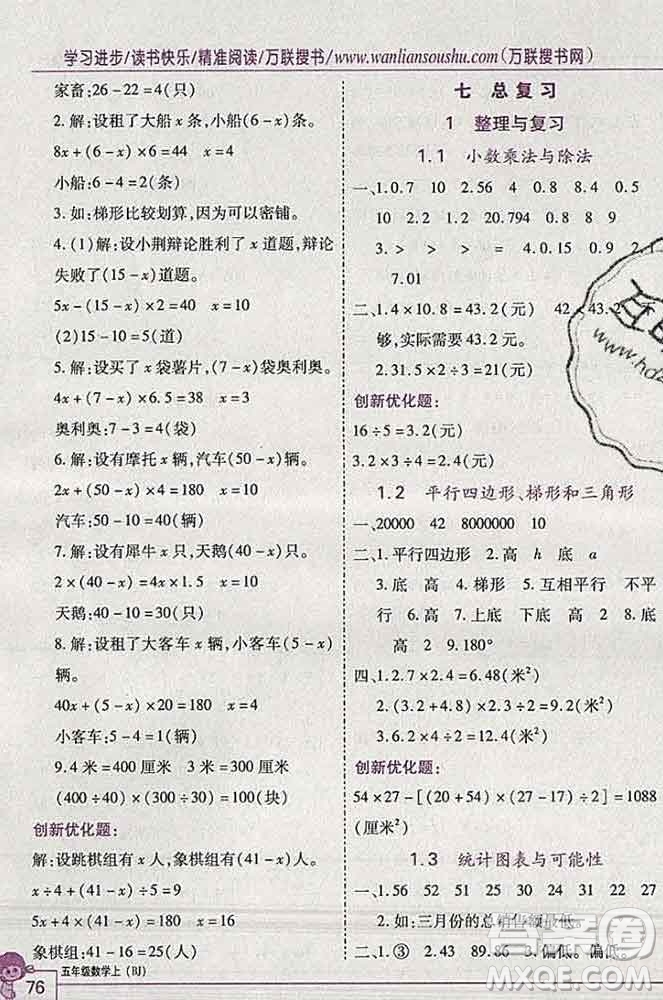 学习进步/读书快乐/精准阅读/万联搜书/www.wanliansoushu.com(万联搜书网)
家畜:26-22=4(只)
2.解:设租了大船x条,小船(6-x)条。
8x+(6-x)×6=44 x=4
小船:6-4=2(条)
3.如:梯形比较划算,因为可以密铺。
4.(1)解:设小荆辩论胜利了x道题,辩论
失败了(15-x)道题。
5x-(15-x)×2=40 x=10
(2)15-10=5(道)
5.解:设买了x袋薯片,(7-x)袋奥利奥。
4x+(7-x)×6.5=38 x=3
奥利奥:7-3=4(袋)
6.解:设有摩托x辆,汽车(50-x)辆。
2x+(50-x)×4=180 x=10
汽车:50-10=40(辆)
7.解:设有犀牛x只,天鹅(40-x)只。
2×(40-x)+4x=100 x=10
天鹅:40-10=30(只)
8.解:设租了大客车x辆,小客车(5-x)
辆。
40x+(5-x)×20=180 x=4
小客车:5-4=1(辆)
9.4米=400厘米 9米=900厘米
(400÷40)×(900÷50)=180(块)
创新优化题:
解:设跳棋组有x人,象棋组有(41-x)人。
x÷4+(41-x)÷5=9
5x+4(41-x)=180 x=16
象棋组:41-16=25(人)
76 五年级数学上(BJ)
七 总复习
1 整理与复习
1.1 小数乘法与除法
一、1.0.7 10 2.56 4 0.8 8.4 0.5
10 2.2 10 2.20.794 0.8 8 9
3.> > > > 4.0.15 0.9 2.1
7.01
二、1.4×10.8=43.2(元) 42<43.2 不
够,实际需要43.2元。
2.31.5×2÷3=21(元)
创新优化题:
16÷5=3.2(元)
3.2×3÷4=2.4(元)
1.2 平行四边形、梯形和三角形
一、20000 42 8000000 10
二、1.平行四边形 2.高 h 底 a
3.底 高 4.梯形 5.互相平行 不平
行 6.高 7.上底 下底 高 2 8.底
高 2 9.180°
四、1.2.7×2.4=6.48(米²)
2.(3.2+4.8)×2÷2=8(米²)
3.6.2×4÷2=12.4(米²)
创新优化题:
54×27-[(20+54)×(27-17)÷2]=1088
(厘米²)
1.3 统计图表与可能性
一、1.56 52 44 45 55 55 54
2.如:三月份的总销售额最低。
二、1.③ 2.43 89.86 3.偏低。偏低。
www.hdz
答案圈
MXQE.COM